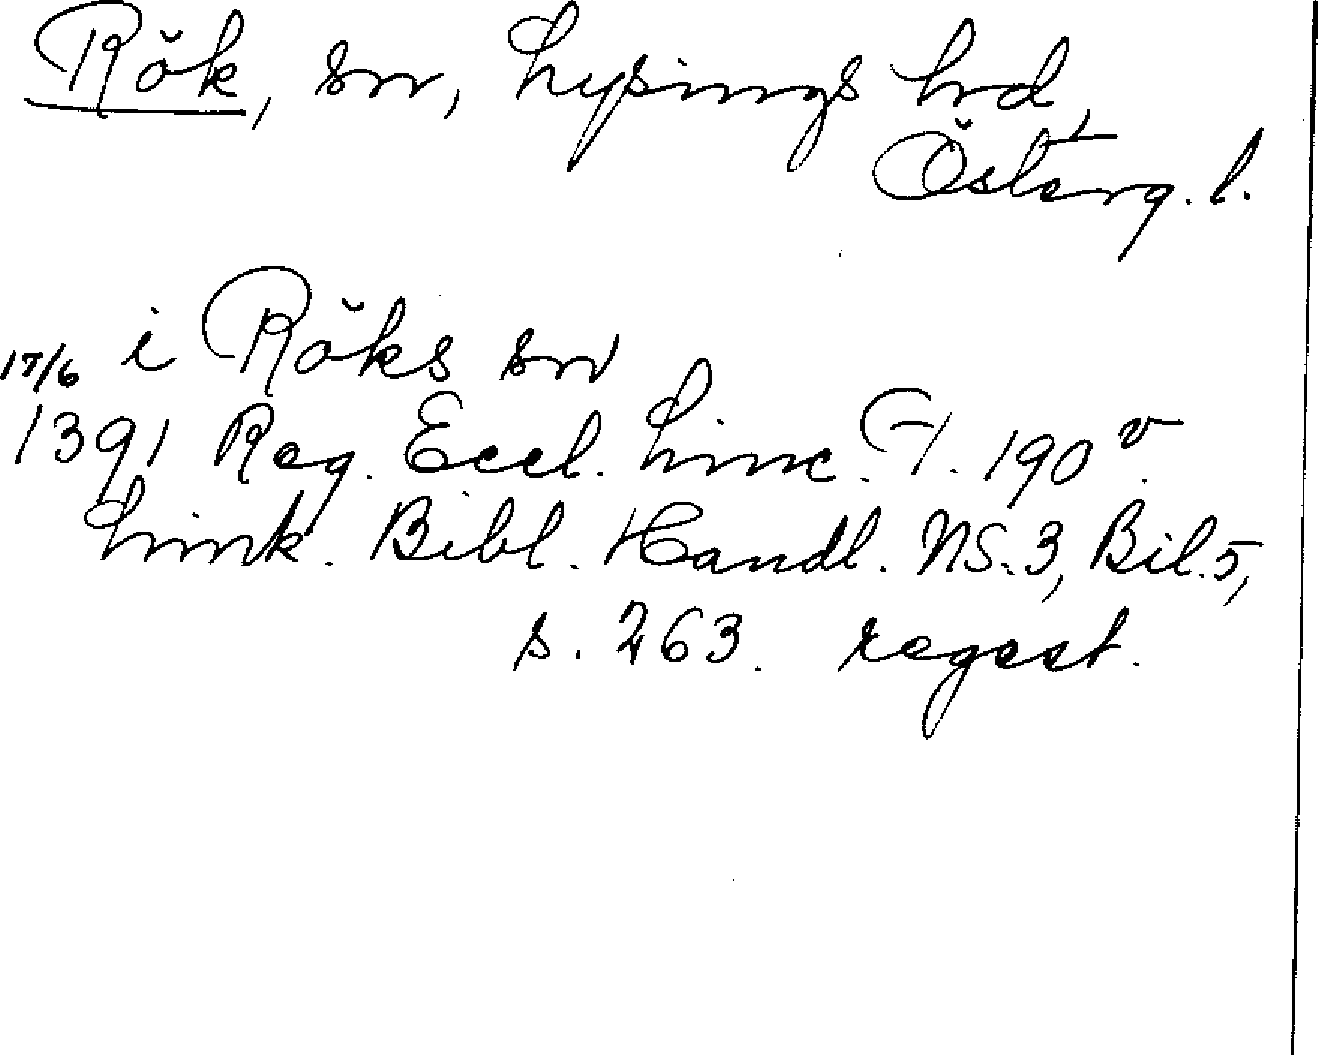 Rök, sn, Lysings hd,
Österg.l.
i Röks sn
17/6
1391 Reg. Eccl. Linc. f. 190v.
Link. Bibl. Handl. NS.3, Bil.5,
s. 263. regest.